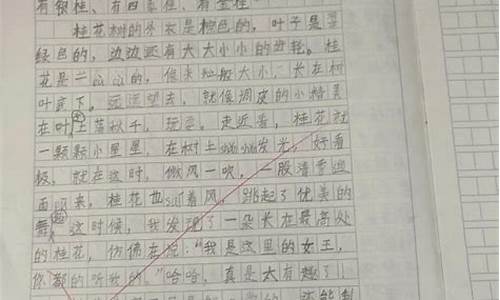 有银桂、有四季桂、有金桂。
桂花树的外衣是棕色的，叶子是
绿色的，边边还有大大小小的齿轮。桂
花是一xiǎo xiǎo的，像米粒般大小，长在树
叶底下。远远望去，就像调皮的小精灵
在叶上荡秋千，玩耍。走近看，桂花就
一颗颗小星星，在树上shǎn shǎn发光，好看
极，就在这时，微风一吹，一股清香迎
面吹来，桂花也suí着风，跳起了优美的
舞。这时候，我发现了一朵长在最高处
的桂花，仿佛在说："我是这里的女王，
你都的听我的。"哈哈，真是太有趣了！